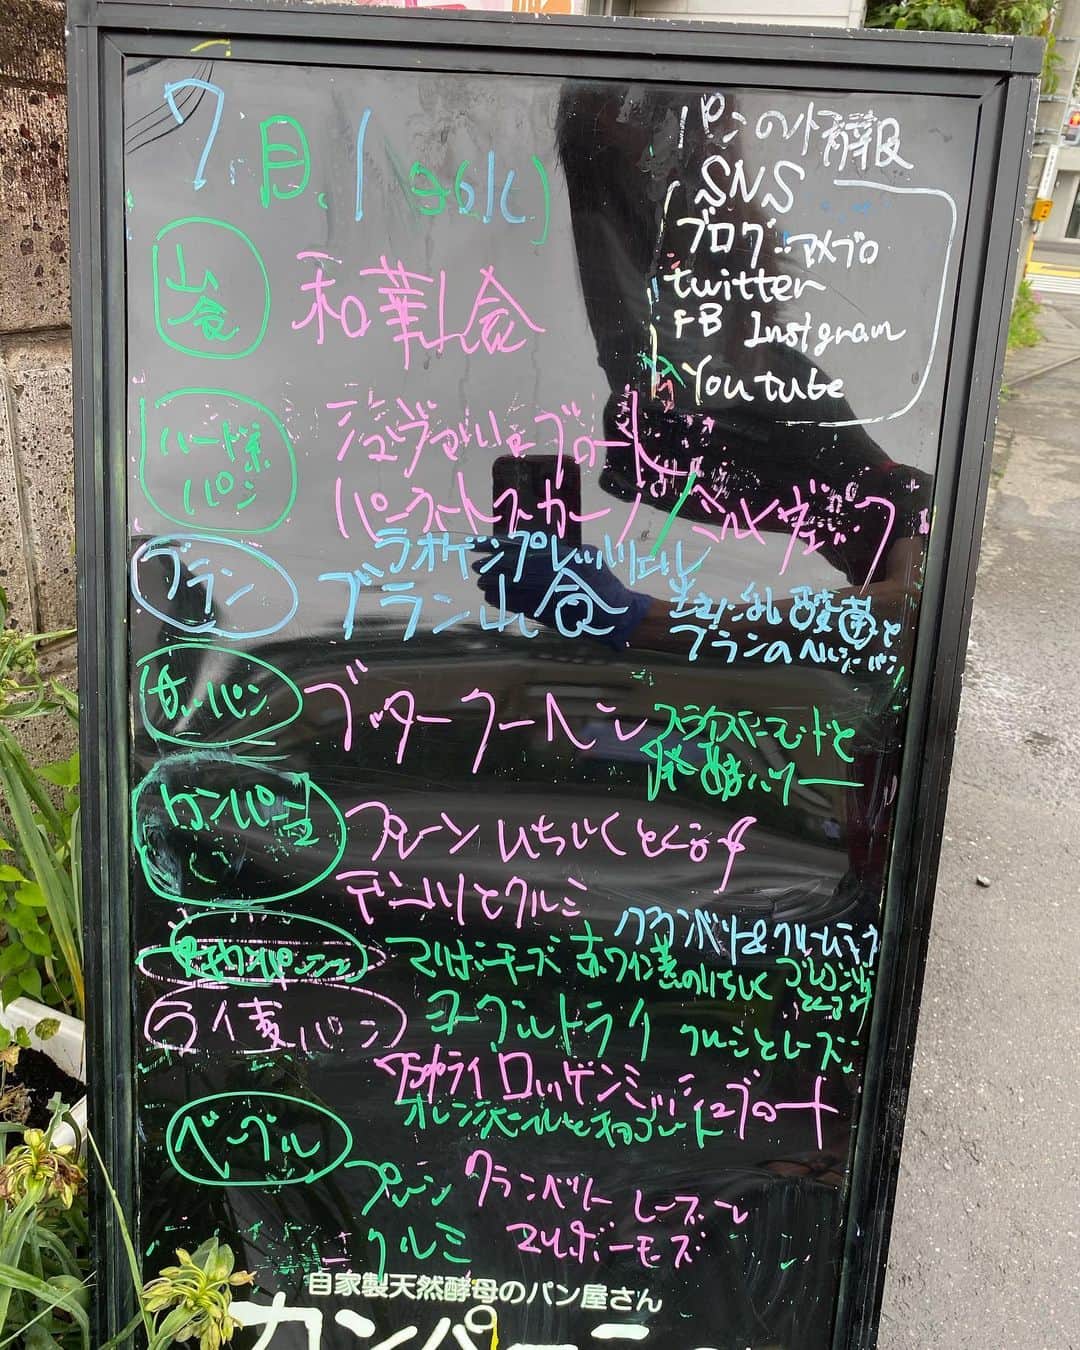 7月1日(火)
パンの情報
SNS
ブログ:アメブロ
twitter
FB Instgram
Youtube
山食
和華山食
ハード系パン
シュヴァルツブロート
ミルヴェック
ブラン
ラオゲンプレッツェル
ブラン山食
生きた乳酸菌と
ブランのヘルシーパン
甘いパン
ブッタークーヘン
スライスアーモンドと
発酵バター
カンパーニュ
プレーン いちじくとくるみ
クランベリー&クリームチーズ
マリボーチーズ 赤ワイン煮のいちじく
とくるみ
ライ麦パン
ヨーグルトライ クルミとレーズン
ロッゲンミッシュブロート
オレンジピールとチョコレート
ベーグル
プレーン クランベリー レーズン
クルミ
自家製天然酵母のパン屋さん
カンパーニュ